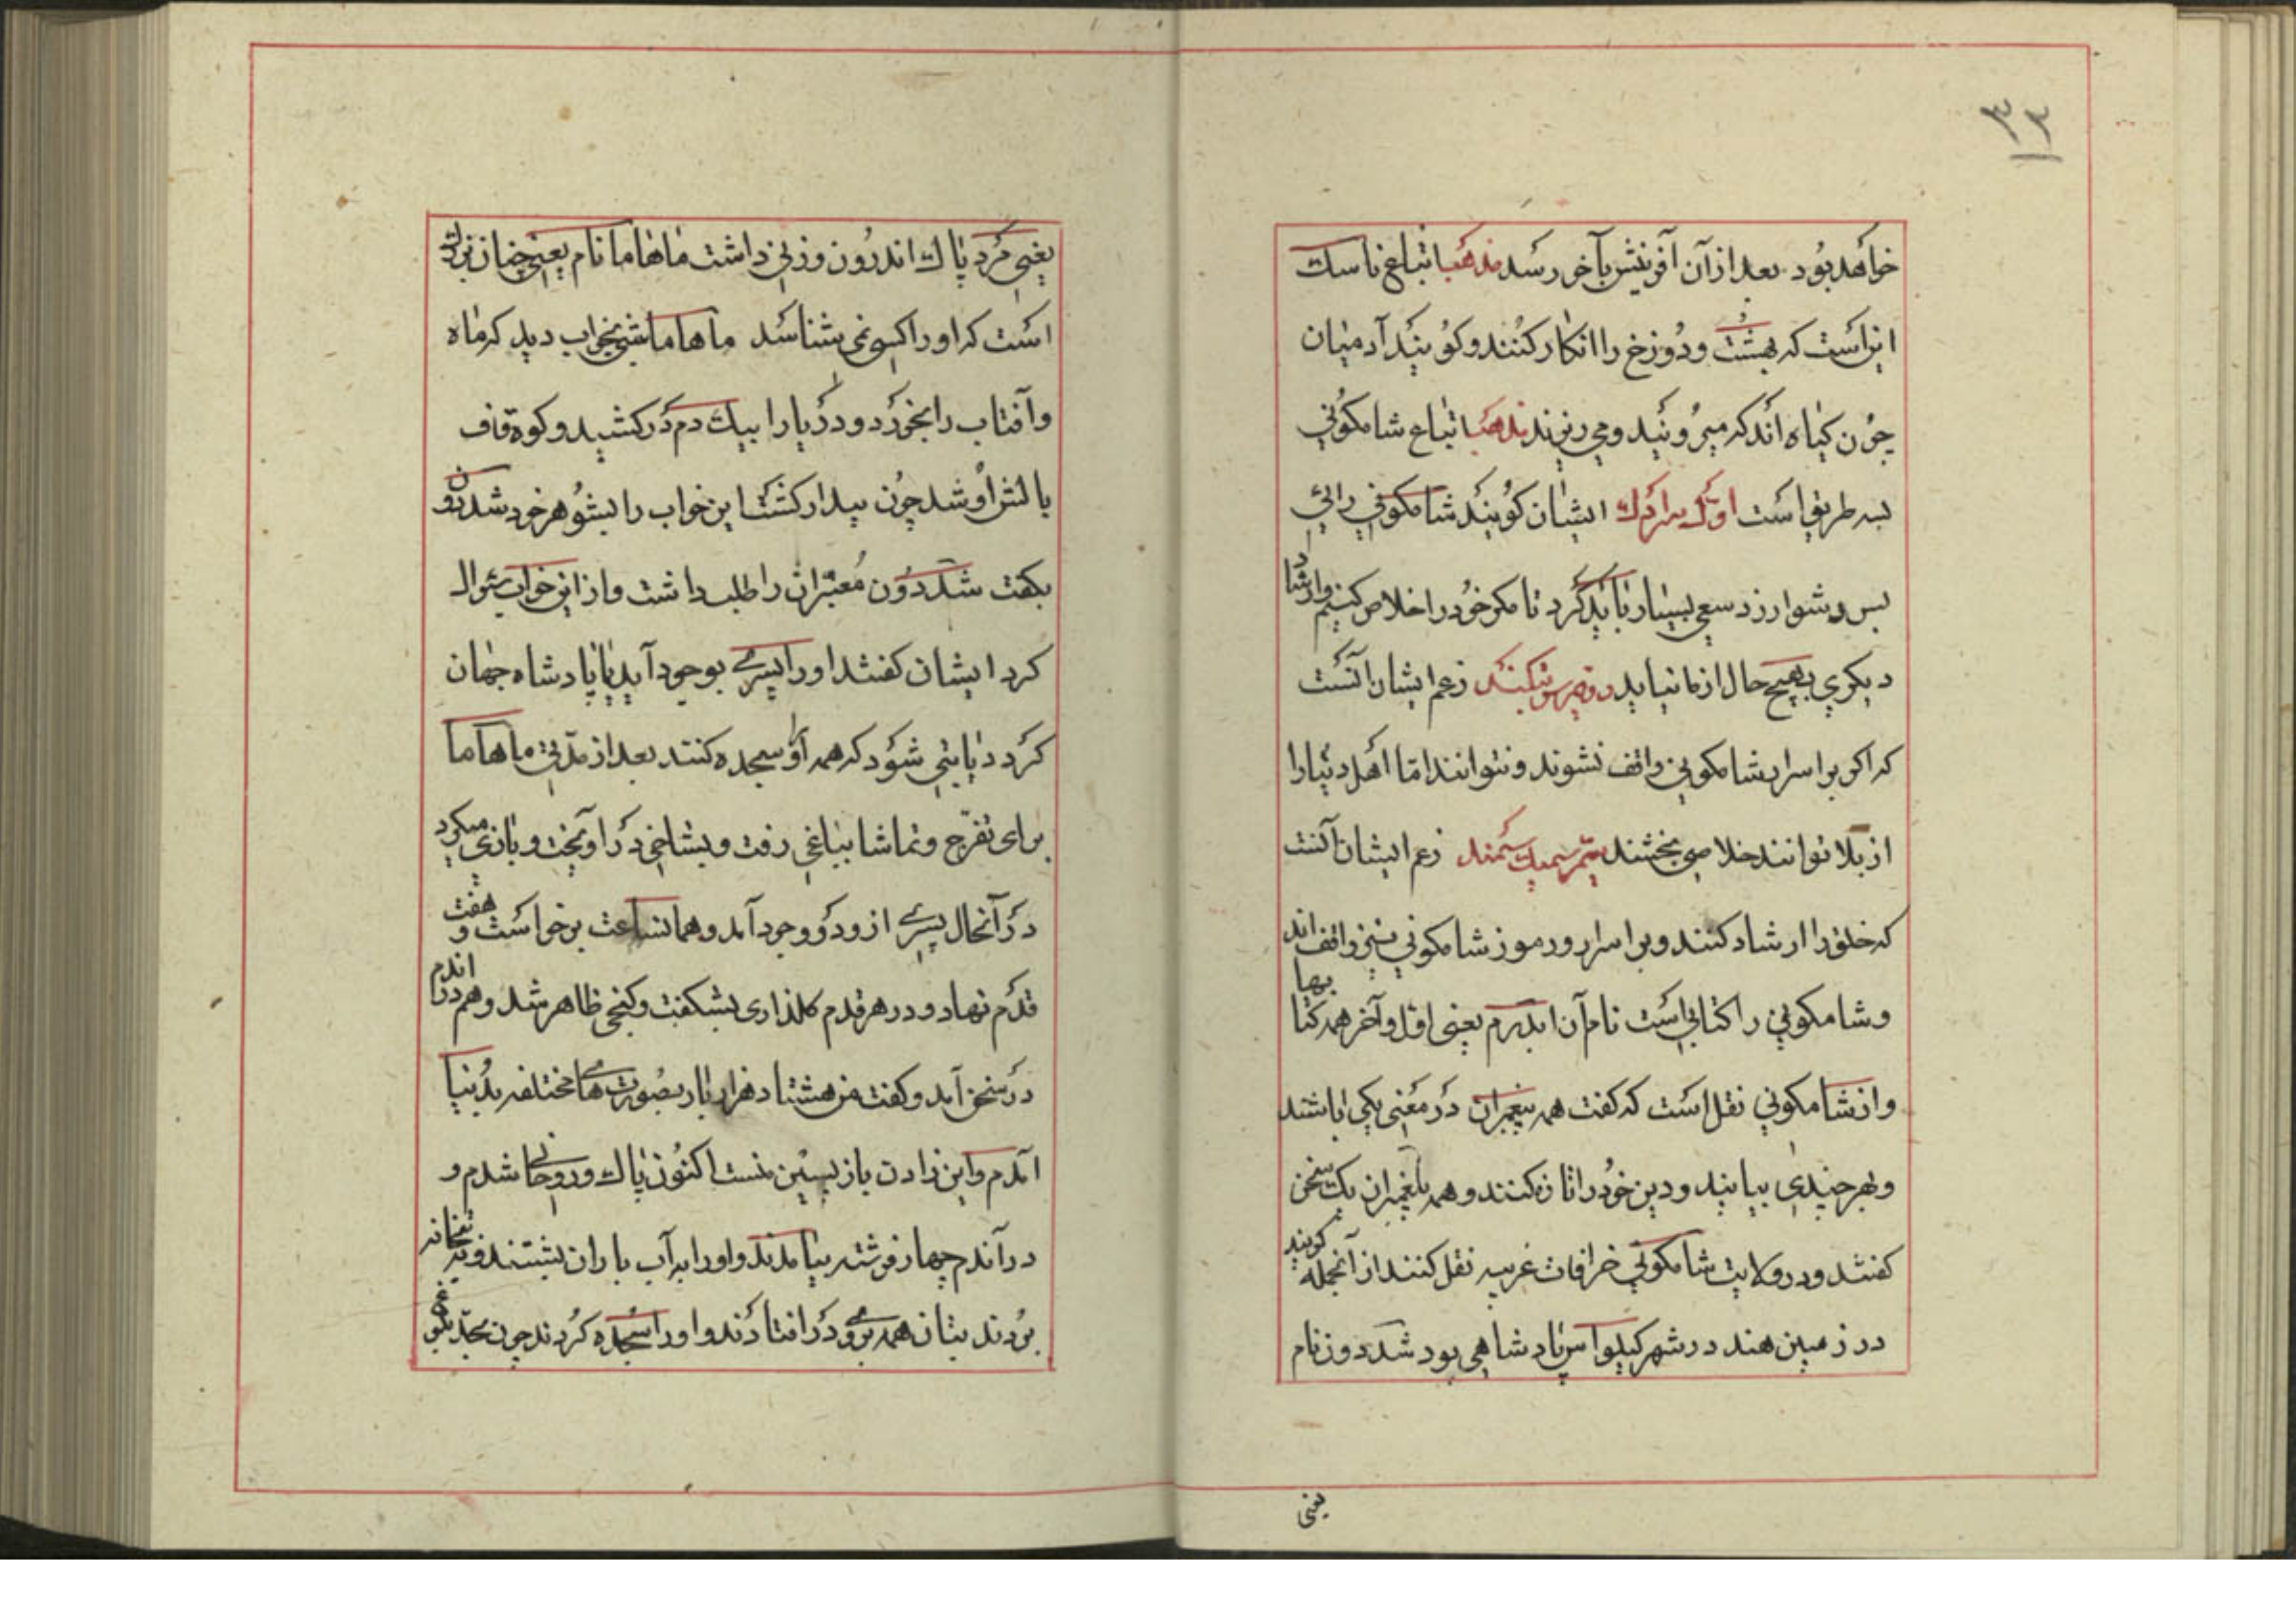 خواهد بود بعد از آن آفرینش بآخر رسد مذهب اتباع ناسک
اینراست که بهشت ودوزخ را انکار کنند وکویند آدمیان
چون کیاه اند که میرویند ومی ریزند مذهب اتباع شامکونی
بسه طریق است اول سراوک ایشان کویند شاکمونی رائی
بس دشوار زد سعی بسیار باید کرد تا مکر خود را خلاص کنیم وارشاد
دیکری بهیچ حال از ما نیاید دوم زعم ایشان آنست
که اکر بر اسرار شامکونی واقف نشوند ونتوانند امّا اهل دنیا را
از بلا توانند خلاصی بخشند زعم ایشان آنست
که خلق را ارشاد کنند وبر اسرار ورموز شامکونی نیز واقف اند
وشامکونی را کتابی است نام آن ابدرم یعنی اوّل وآخر همه کتابها
وازشامکونی نقل است که کفت همه پیغمبران در معنی یکی باشند
وبهر چندی بیایند ودین خود را تازه کنند وهمه پیغمبران یک سخن
کفتند ودر ولایت شامکونی خرافات غریبه نقل کنند از آنجمله کویند
در زمین هند در شهر کیلواس پادشاهی بود شددون نام
یعنی
یعنی مرد پاک اندرون وزنی داشت ماهاما نام یعنی چنان بزرک
است که او را کسی نمی شناسد ماهاما شبی بخواب دید که ماه
وآفتاب را بخورد ودریا را بیک دم درکشید وکوه قاف
بالش او شد چون بیدار کشت این خواب را بشوهر خود شددون
بکفت شددون معبّران را طلب داشت واز این خواب سئوال
کرد ایشان کفتند او را پسری بوجود آید یا پادشاه جهان
کردد یا بتی شود که همه او را سجده کنند بعد از مدّتی ماهاما
برای تفرّج وتماشا بباغی رفت وبشاخی در آویخت وبازی میکرد
در آنحال پسری ازو در وجود آمد وهمانساعت برخواست و هفت
قدم نهاد ودر هر قدم کلذاری بشکفت وکنجی ظاهر شد وهم در اندم
در سخن آمد وکفت من هشتاد هزار بار بصورت های مختلفه بدنیا
آمدم واین زادن باز پسین منست اکنون پاک وروحانی شدم و
در آندم چهار فرشته بیامدند واو را به آب باران بشستند وبه بتخانه
بردند بتان همه بروی در افتادند واو را سجده کردند چون بحدّ بلوغ